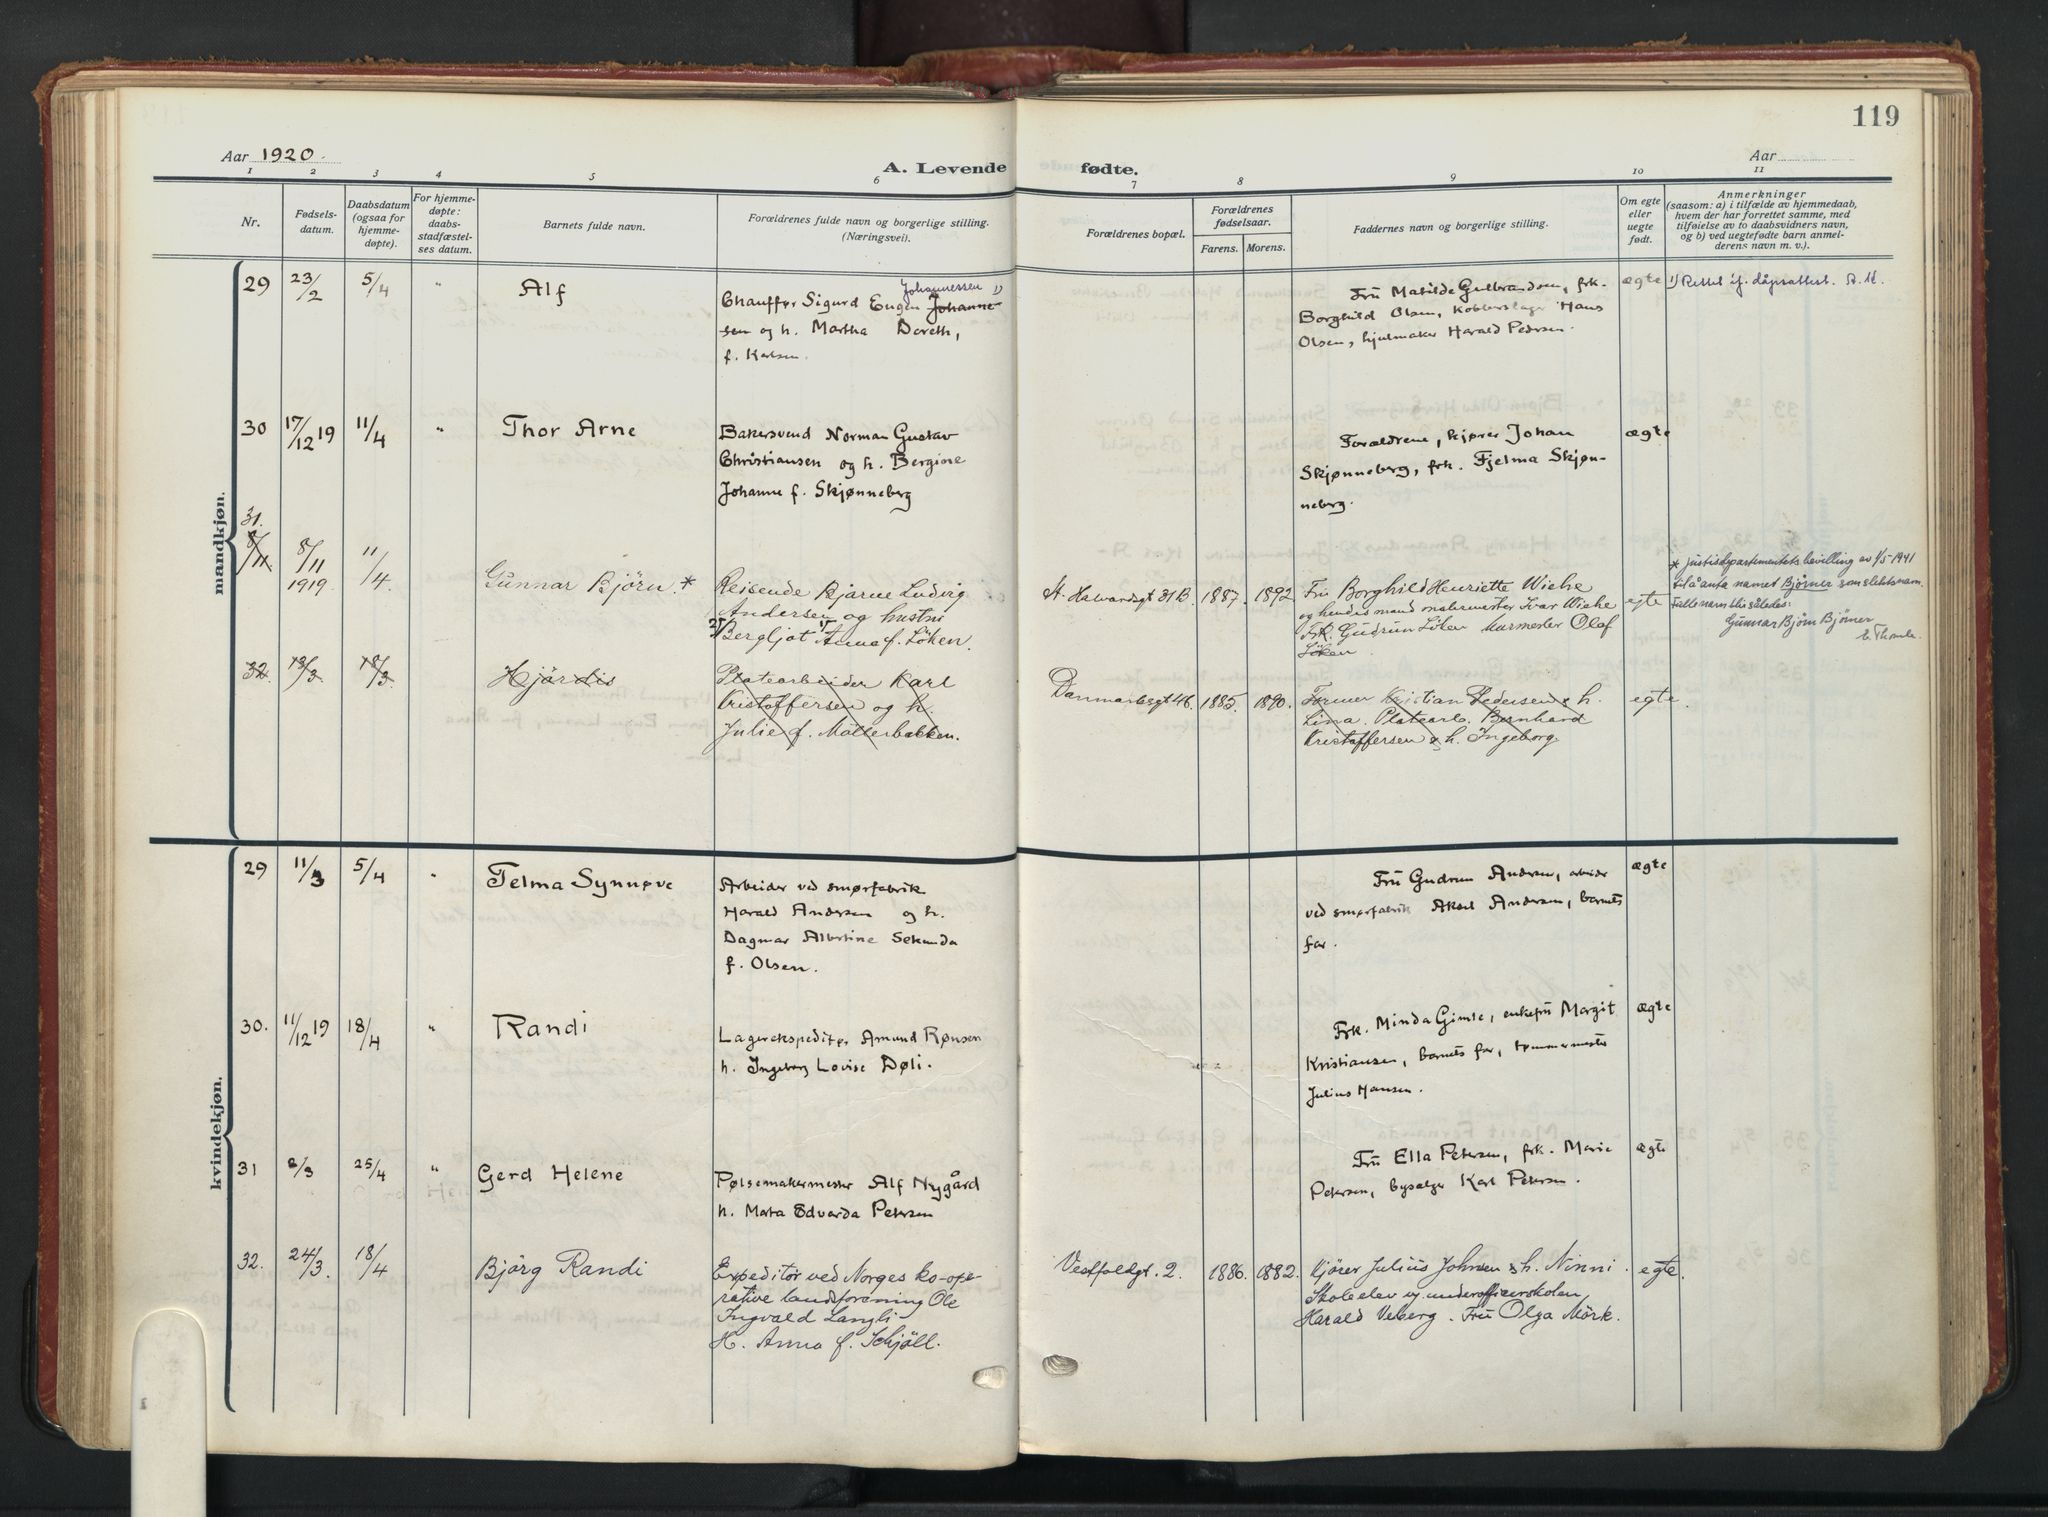 119
Aar 1920.
A. Levende fødte.
Aar
1 2 3 4 5 6 7 8 9 10 11
Nr.
Fødsels-
datum.
Daabsdatum
(ogsaa for
hjemme-
døpte).
For hjemme-
døpte:
daabs-
stadfæstel-
ses datum.
Barnets fulde navn.
Forældrenes fulde navn og borgerlige stilling.
(Næringsvei).
Forældrenes bopæl.
Forældrenes
fødselsaar.
Farens. Morens.
Faddernes navn og borgerlige stilling.
Om egte
eller
uegte
født.
Anmerkninger
(saasom: a) i tilfælde av hjemmedaab,
hvem der har forrettet samme, med
tilføielse av to daabsvidners navn,
og b) ved uegtefødte barn anmel-
derens navn m. v.).
mandkjøn.
29 23/2 5/4 "
Alf
Johannessen 1)
Chauffør Sigurd Eugen Johanne-
sen og h. Martha Doreth,
f. Karlsen.
Fru Matilde Gulbrandsen, frk.
Borghild Olsen, kobberslager Hans
Olsen, hjulmaker Harald Pedersen.
ægte
1) Rettet if. dåpsattest. A. M.
30 17/12 19 11/4 "
Thor Arne
Bakersvend Norman Gustav
Christiansen og h. Bergine
Johanne f. Skjønneberg
Forældrene, kjører Johan
Skjønneberg, frk. Fjelma Skjøn-
neberg.
ægte
31.
8/11 8/11 1919 11/4
Gunnar Bjørn. *
Reisende Bjarne Ludvig
Andersen og hustru
Bergljot Anna f. Löken.
St. Halvardsgt 31 B. 1887. 1892.
Fru Borghild Henriette Wiehe
og hendes mand malermester Ivar Wiehe
Frk. Gudrun Löken Murmester Olaf
Löken.
egte
* Justisdepartementets bevilling av 1/5 1941
til å anta navnet Bjørner som slektsnavn
Fulle navn blir således:
Gunnar Bjørn Bjørner
32. 18/3 18/3
Hjördis
Platearbeider Karl
Kristoffersen og h.
Julie f. Mölterbakken.
Danmarksgt 46. 1885. 1890.
Former Kristian Pedersen & h.
Lina. Platearb. Bernhard
Kristoffersen & h. Ingeborg.
egte.
kvindekjøn.
29 11/3 5/4 "
Telma Synnøve
Arbeider ved smørfabrik
Harald Andersen og h.
Dagmar Albertine Sekunda
f. Olsen.
Fru Gudrun Andersen, arbeider
ved smørfabrik Aksel Andersen, barnets
far.
ægte
30. 11/12 19 18/4 "
Randi
Lagerekspeditør Amund Rønsen
h. Ingeborg Lovise Døli.
Frk. Minda Gimle, enkefru Margit
Kristiansen, barnets far, tømmermester
Julius Hansen.
ægte
31 2/3 25/4 "
Gerd Helene
Pølsemakermester Alf Nygård
h. Marta Edvarda Petersen
Fru Ella Petersen, frk. Marie
Petersen, bysælger Karl Petersen.
ægte
32. 24/3. 18/4
Bjørg Randi
Expeditör ved Norges ko-ope-
rative landsforening Ole
Ingvald Langli
H. Anna f. Schjöll.
Vestfoldgt. 2. 1886. 1882.
Kjörer Julius Johnsen & h. Ninni.
Skoleelev v. underofficerskolen
Harald Veberg. Fru Olga Mörk.
egte.